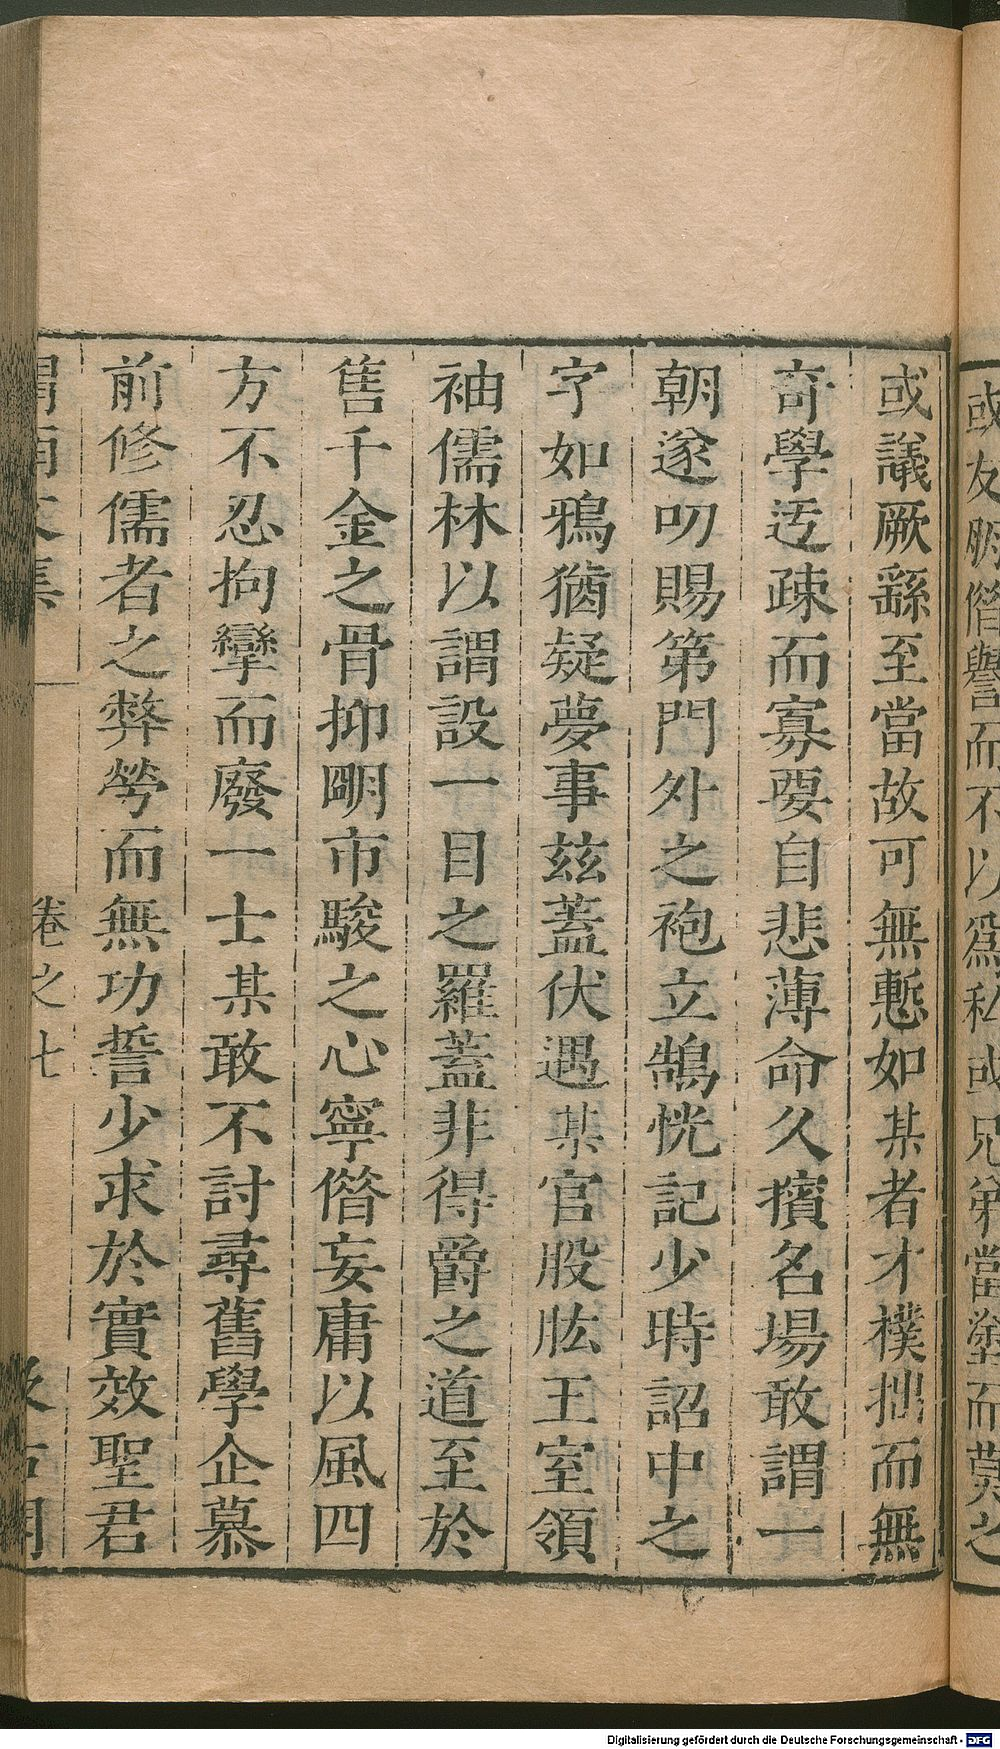 或友朋僭譽而不以爲私或兄弟當塗而莫之
或議厥繇至當故可無慙如某者才樸拙而無
奇學迃疎而寡要自悲薄命久擯名場敢謂一
朝遂叨賜第門外之袍立鵠恍記少時詔中之
字如鴉猶疑夢事茲蓋伏遇某官股肱王室領
袖儒林以謂設一目之羅蓋非得爵之道至於
售千金之骨抑明市駿之心寧僭妄庸以風四
方不忍拘攣而廢一士某敢不討尋舊學企慕
前修儒者之弊勞而無功誓少求於實效聖君
渭南文集 卷之七 汲古閣
Digitalisierung gefördert durch die Deutsche Forschungsgemeinschaft - DFG